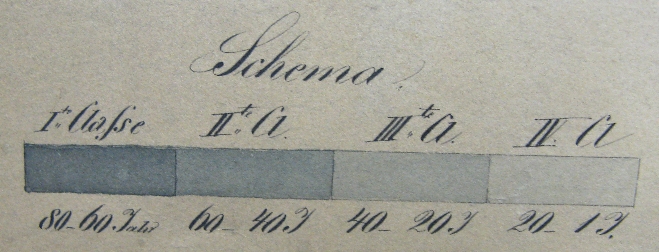 Schema.
I.te Classe II.te Cl. III.te Cl. IV. Cl
80–60 Jahr 60–40 J 40–20 J 20–1 J.